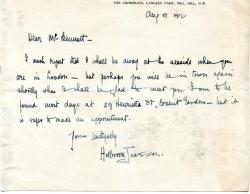 THE CHOWBENT, LANGLEY PARK, MILL HILL, N.W.
Aug 19 1912
Dear Mr Bennett –
I much regret that I shall be away at the seaside when you
are in London – but perhaps you will be in town again
shortly when I shall be glad to meet you. I am to be
found most days at 29 Henrietta St, Covent Garden – but it
is safer to make an appointment.
Yours faithfully
Holbrook Jackson.